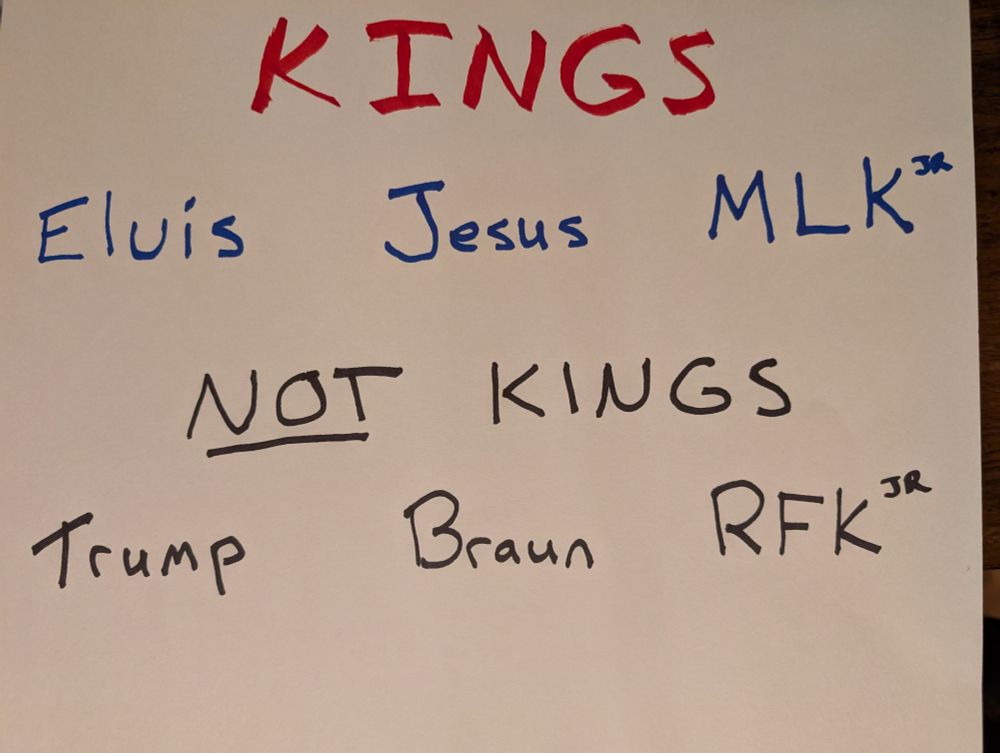 KINGS
Elvis Jesus MLK JR
NOT KINGS
Trump Braun RFK JR